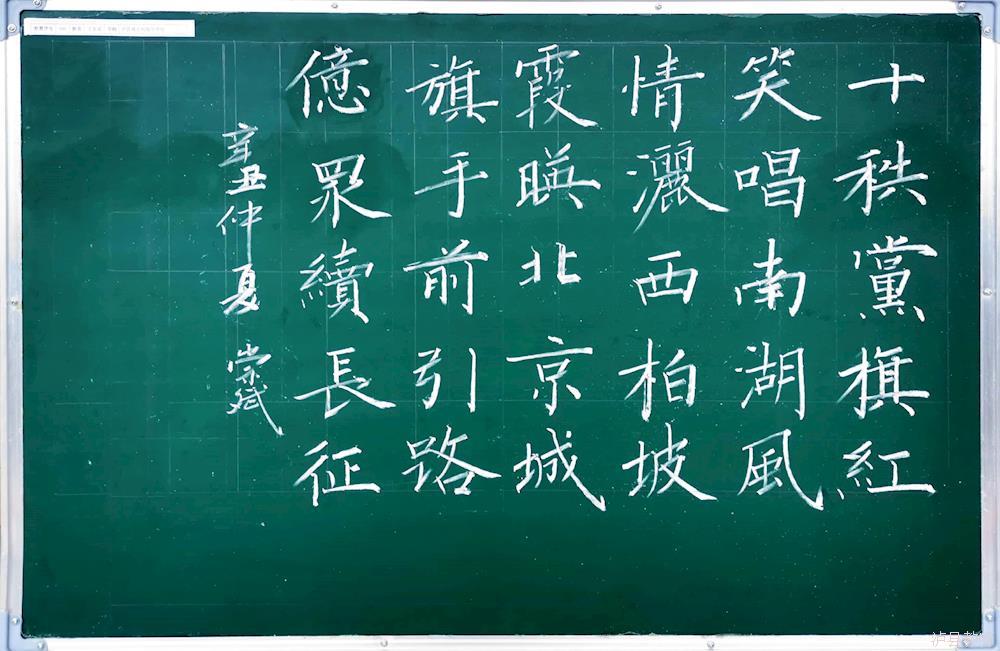 十秩黨旗紅
笑唱南湖風
情灑西柏坡
霞暎北京城
旗手前引路
億眾續長征
辛丑仲夏 崇斌